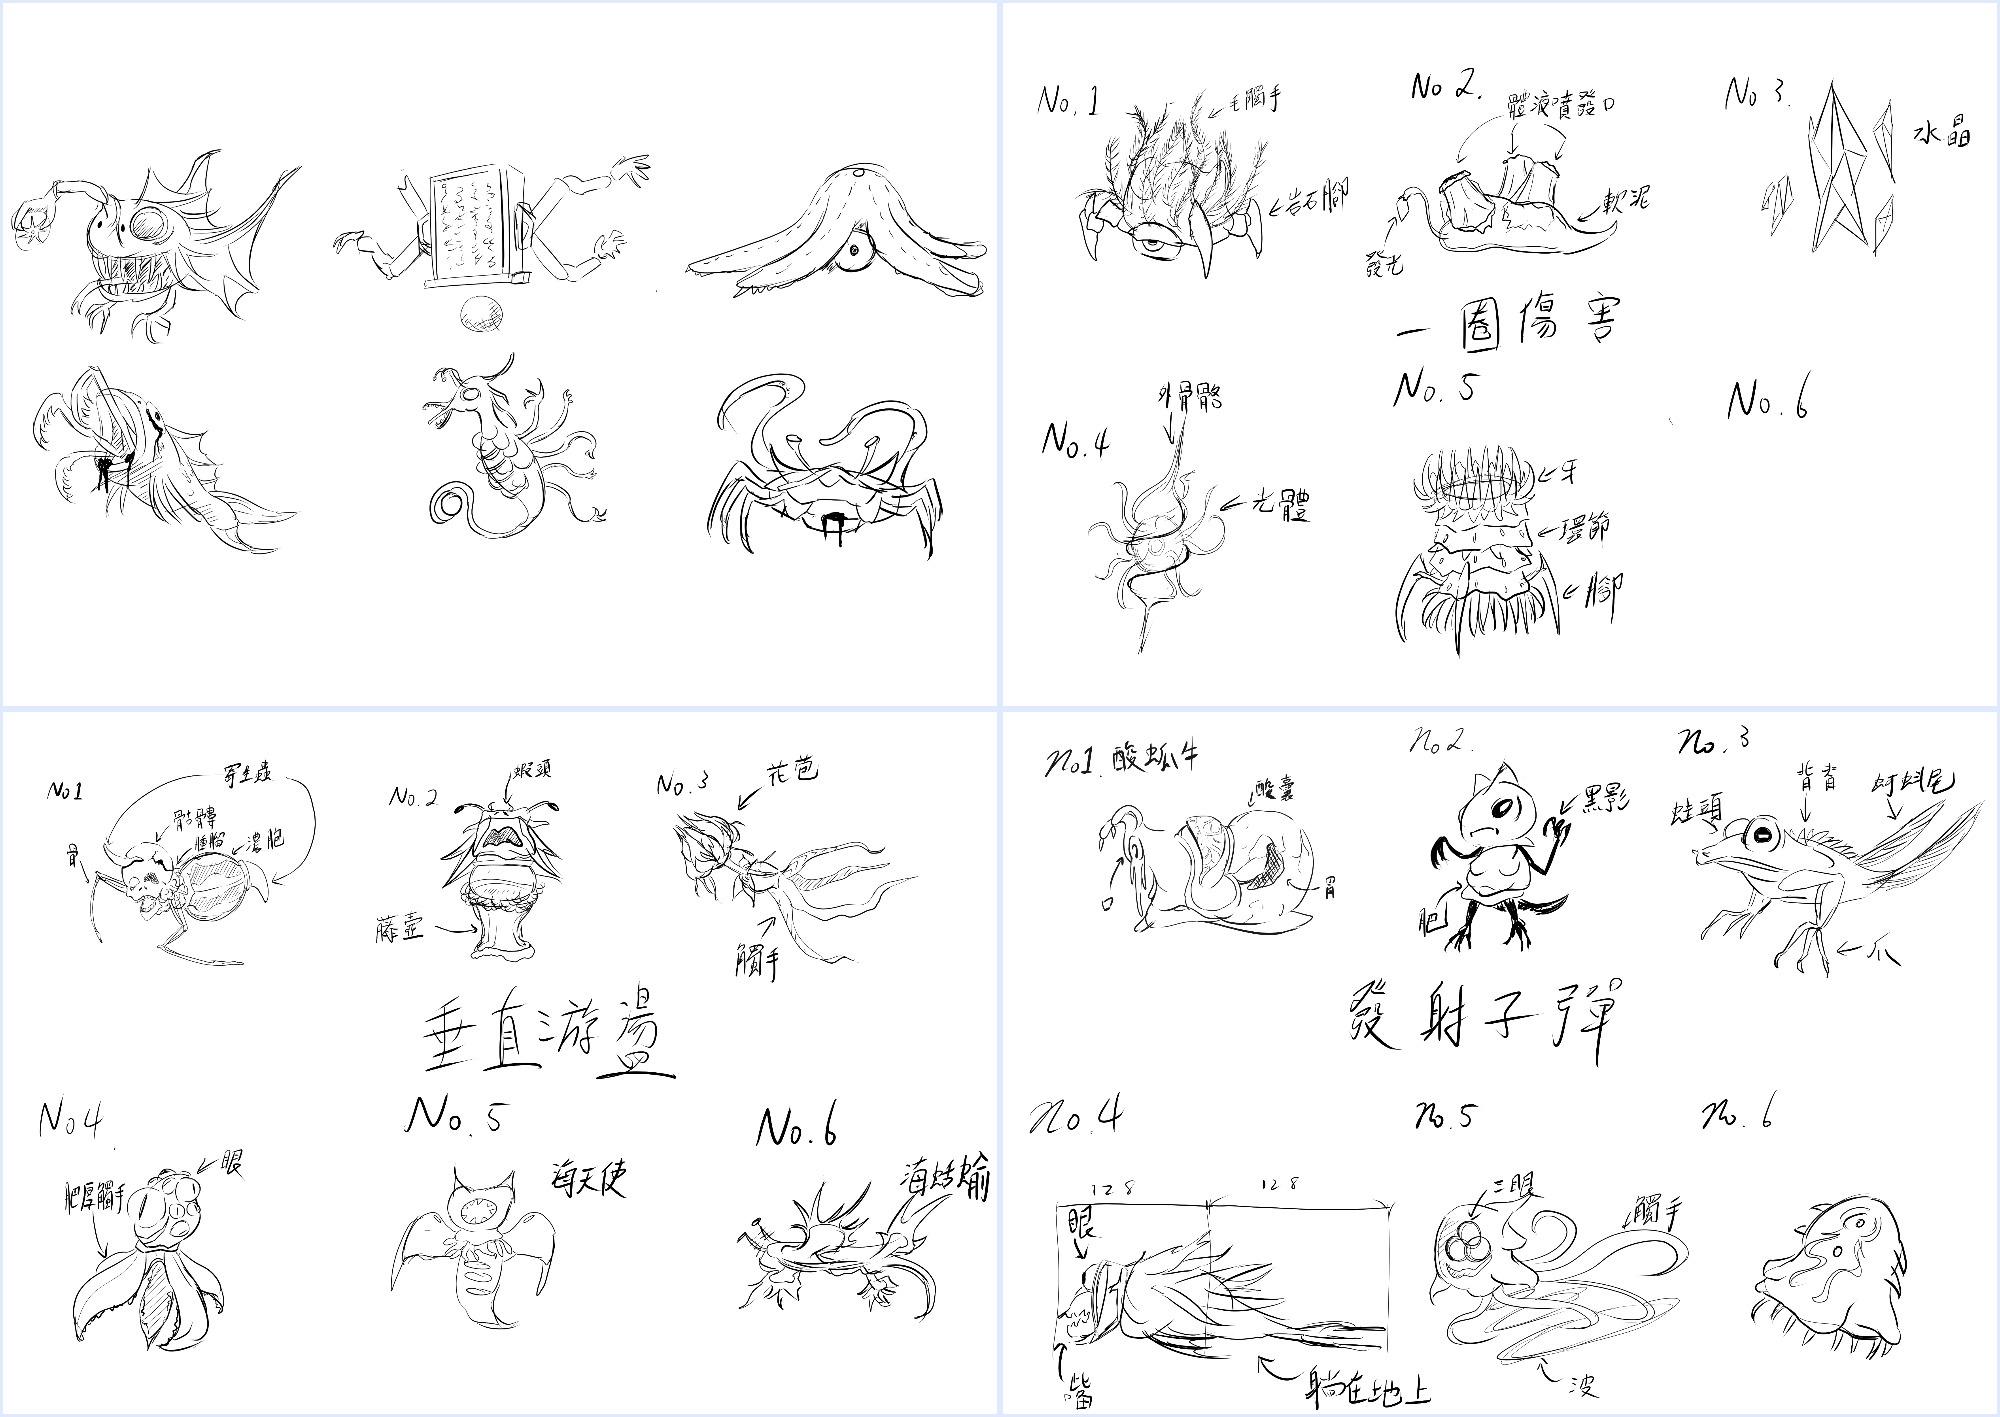 No.1
毛觸手
岩石腳
No 2.
體液噴發口
軟泥
發光
No 3.
水晶
一圈傷害
No.4
外骨骼
光體
No.5
牙
環節
腳
No.6
No1
寄生蟲
骷髏
腫瘤
膿胞
骨
No.2
蝦頭
藤壺
No.3
花苞
觸手
垂直游盪
No4.
眼
肥厚觸手
No.5
海天使
No.6
海蛞蝓
no1. 酸蝸牛
酸囊
口
胃
no2.
黑影
肥
no.3
蛙頭
背脊
蝌蚪尾
爪
發射子彈
no.4
128
128
眼
嘴
躺在地上
no.5
三眼
觸手
波
no.6